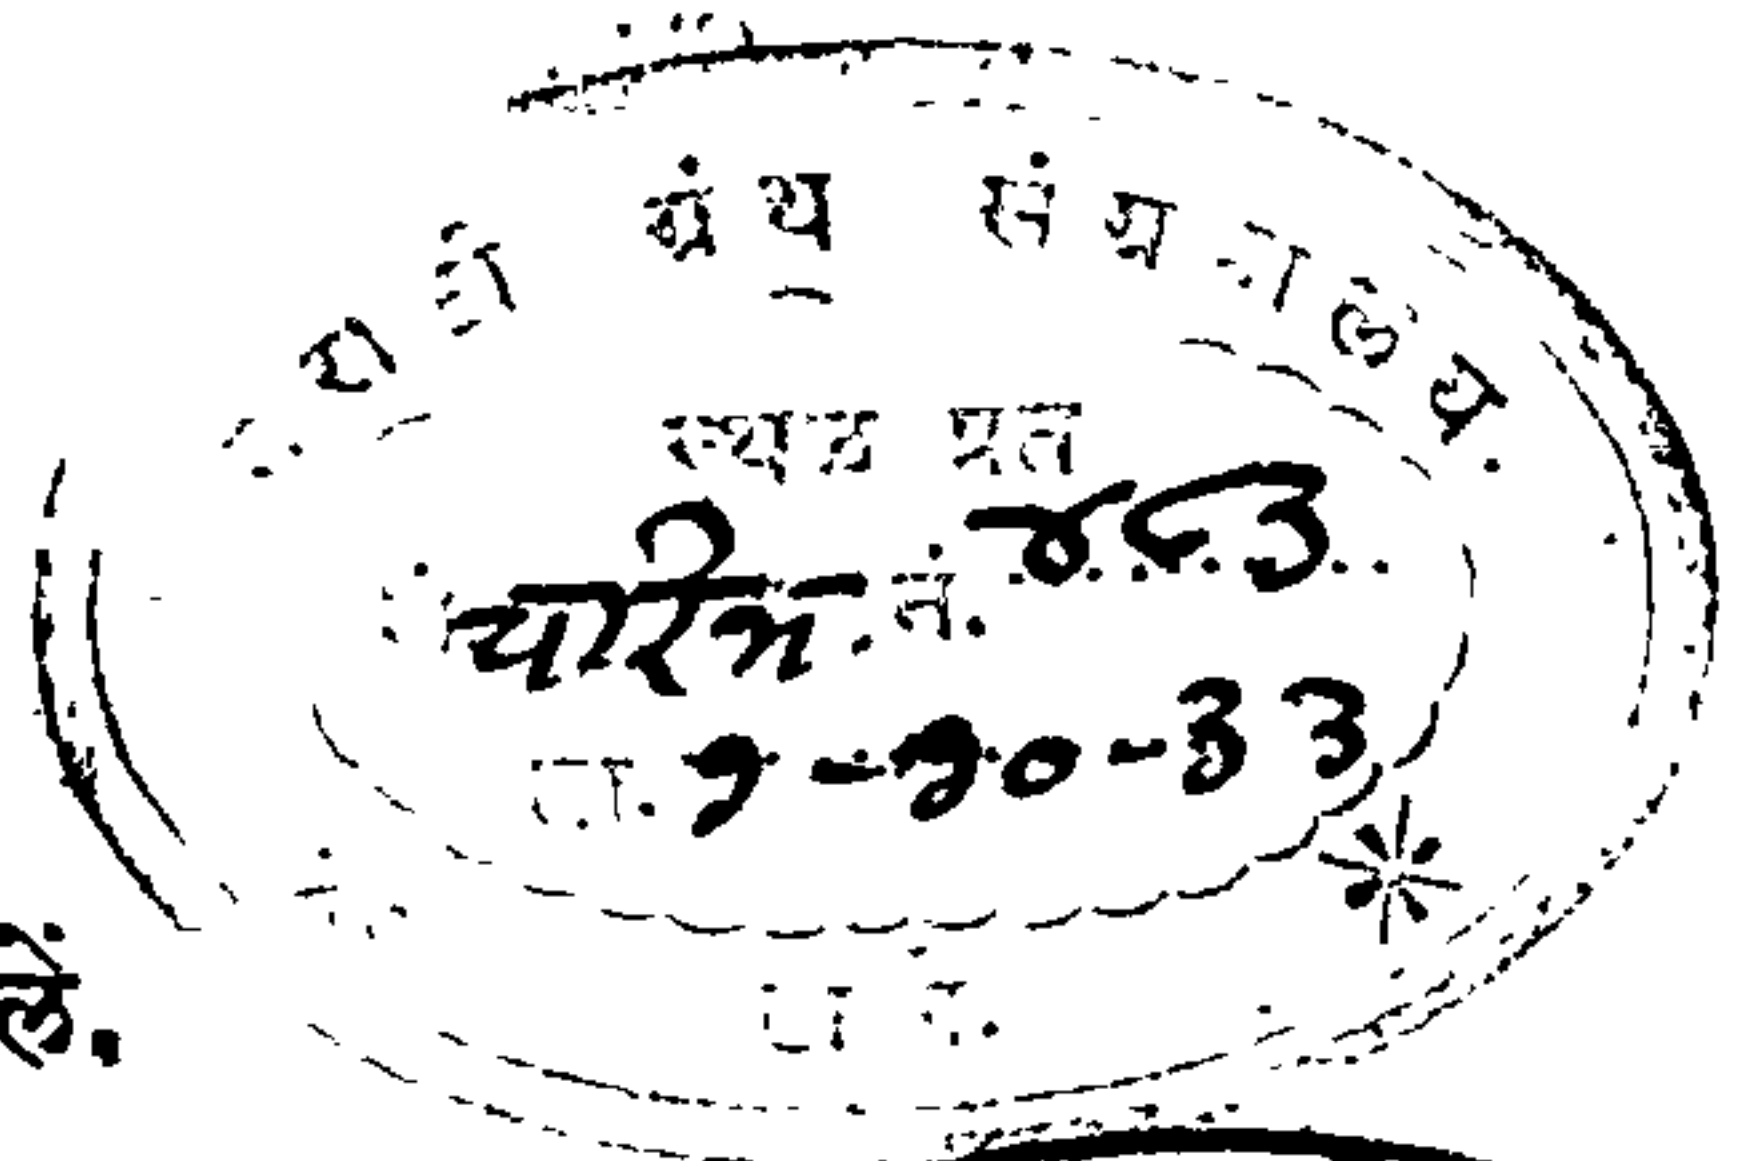 ग्रंथ संग्रहालय.
स्थळ प्रत
चरित्र नं. ४८३
ता. १-१०-३३
लें.